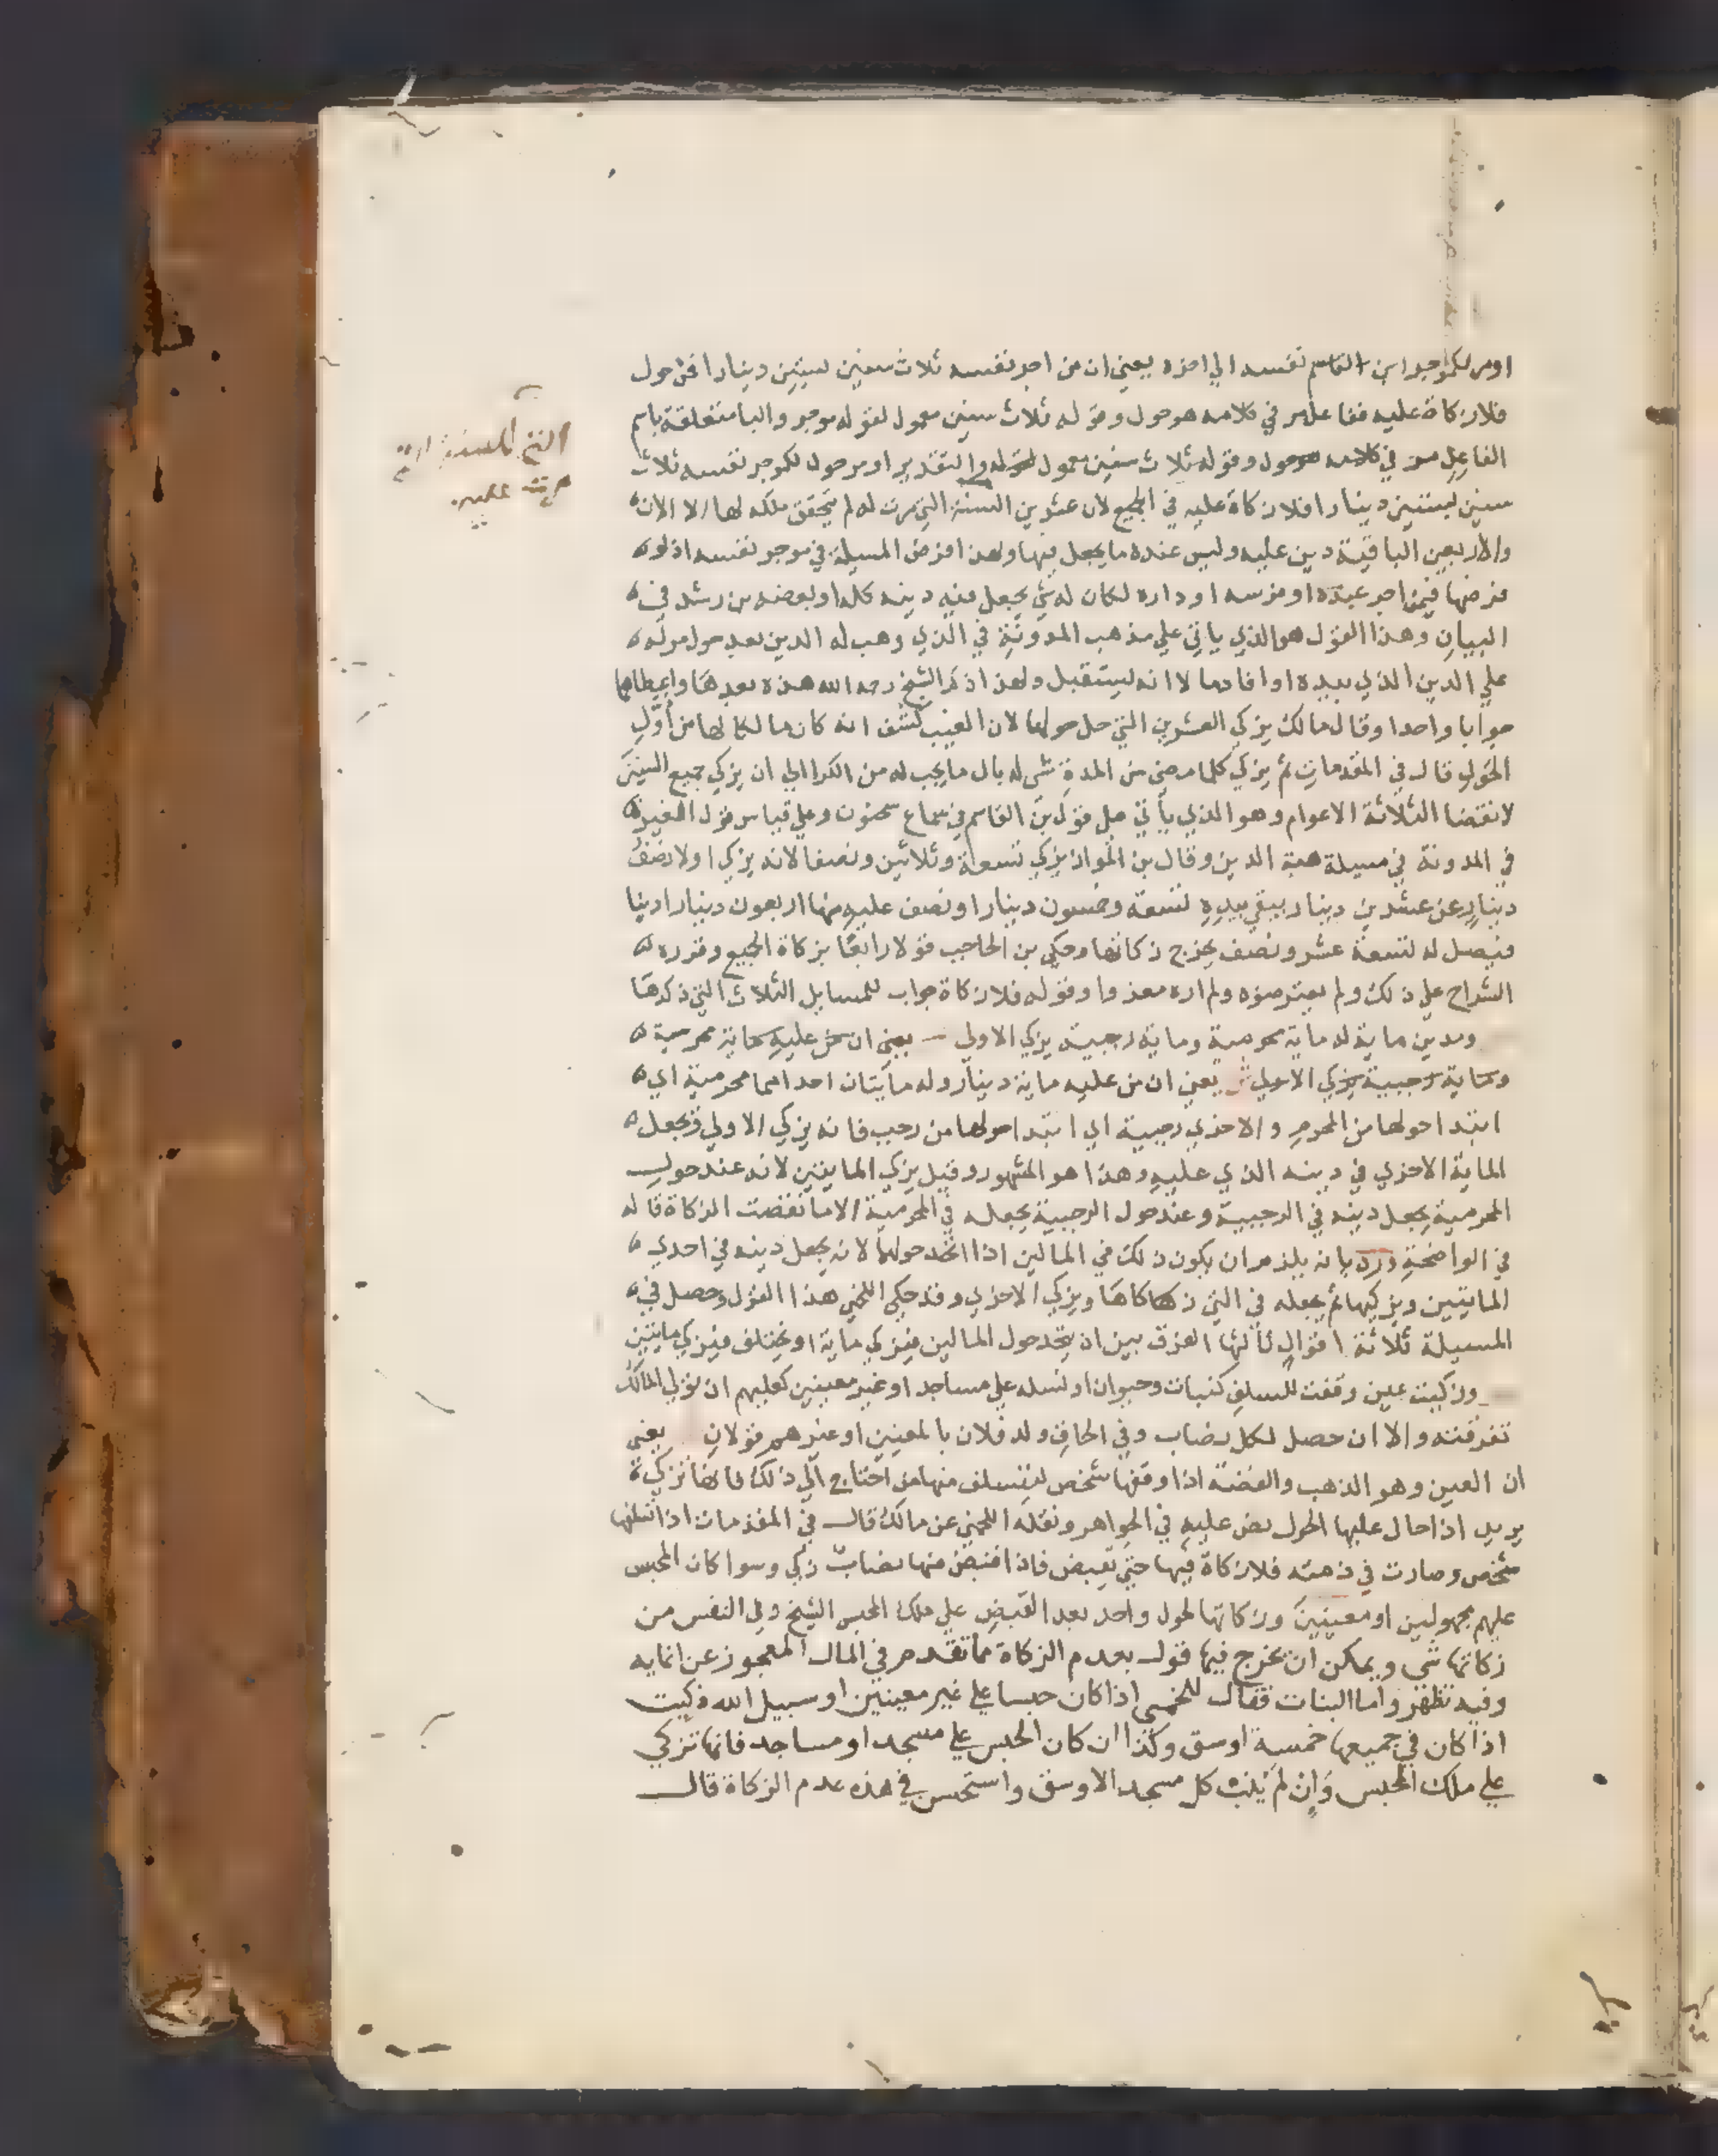 او مر لكموجر ابن القاسم نفسه الي اخره يعني ان من اجر نفسه ثلاث سنين بستين دينارا فمر حول
فلا زكاة عليه ففاعل مر في كلامه هو حول وقوله ثلاث سنين معمول لقوله موجر والبا متعلقة باسم
الفاعل مر في كلامه هو حول وقوله ثلاث سنين معمول لقوله والتقدير او مر حول لكموجر نفسه ثلاث
سنين بستين دينارا فلا زكاة عليه في الجميع لان عشرين السنة التي مرت له لم يتحقق ملكه لها الا الان
والاربعين الباقية دين عليه وليس عنده ما يجعل فيها ولهذا فرض المسيلة في موجر نفسه اذ لو
فرضها فيمن اجر عبده او فرسه او داره لكان له شي يجعل فيه دينه كله او بعضه بن رشد في
البيان وهذا القول هو الذي ياتي علي مذهب المدونة في الذي وهب له الدين بعد حول حوله
علي الدين الذي بيده او افاد ما لا انه يستقبل ولهذا ذكر الشيخ رحمه الله هذه بعدها واعطاها
جوابا واحدا وقال مالك يزكي العشرين التي حل حولها لان الغيب كشف انه كان مالكا لها من اول
الحول قال في المقدمات ثم يزكي كلما مضي من المدة شي له بال ما يجب له من الكرا الي ان يزكي جميع الستين
لانقضا الثلاثة الاعوام وهو الذي ياتي علي قول بن القاسم في سماع سحنون وعلي قياس قول الغير
في المدونة في مسيلة هبة الدين وقال بن المواز يزكي تسعة وثلاثين ونصفا لانه يزكي اولا نصف
دينار عن عشرين دينار يبقي بيده تسعة وخمسون دينارا ونصف عليه منها اربعون دينارا دينا
فيصل له تسعة عشر ونصف يخرج زكاتها وحكي بن الحاجب قولا رابعا بزكاة الجميع وقرره
الشراح علي ذلك ولم يعترضوه ولم اره معزوا وقوله فلا زكاة جواب للمسايل الثلاث التي ذكرها
ومدين ماية له ماية محرمية وماية رجبية يزكي الاولي يعني ان من عليه ماية محرمية
وماية رجبية يزكي الاولي ش يعني ان من عليه ماية دينار وله مايتان احداهما محرمية اي
ابتدا حولها من المحرم والاخري رجبية اي ابتدا حولها من رجب فانه يزكي الاولي ويجعل
الماية الاخري في دينه الذي عليه وهذا هو المشهور وقيل يزكي المايتين لانه عند حول
المحرمية يجعل دينه في الرجبية وعند حول الرجبية يجعله في المحرمية الا ما نقصت الزكاة قاله
في الواضحة ورد بانه يلزم ان يكون ذلك في المالين اذا اتحد حولهما لانه يجعل دينه في احدي
المايتين ويزكيها ثم يجعله في التي زكاها ويزكي الاخري وقد حكي اللخمي هذا القول وحصل في
المسيلة ثلاثة اقوال ثالثها الفرق بين ان يتحد حول المالين فيزكي ماية او يختلف فيزكي مايتين
وزكيت عين وقفت للسلف كنبات وحيوان او نسله علي مساجد او غير معينين كعليهم ان تولي المالك
تفرقته والا ان حصل لكل نصاب وفي الحاق ولد فلان بالمعينين او غيرهم قولان يعني
ان العين وهو الذهب والفضة اذا وقفها شخص ليتسلف منها من احتاج الي ذلك فانها تزكي
يريد اذا حال عليها الحول نص عليه في الجواهر ونقله اللخمي عن مالك قال في المقدمات اذا تسلفها
شخص وصارت في ذمته فلا زكاة فيها حتي تقبض فاذا اقتبض منها نصاب زكي وسوا كان المحبس
عليهم مجهولين او معينين وزكاتها لحول واحد بعد القبض علي ملك المحبس الشيخ وفي النفس من
زكاتها شي ويمكن ان يخرج فيها قول بعدم الزكاة مما تقدم في المال المعجوز عن انمايه
وفيه نظر واما النبات فقال اللخمي اذا كان حبسا علي غير معينين او سبيل الله زكيت
اذا كان في جميعها خمسة اوسق وكذا ان كان الحبس علي مسجد او مساجد فانها تزكي
علي ملك المحبس وان لم ينب كل مسجد الا وسق واستحسن في هذه عدم الزكاة قال